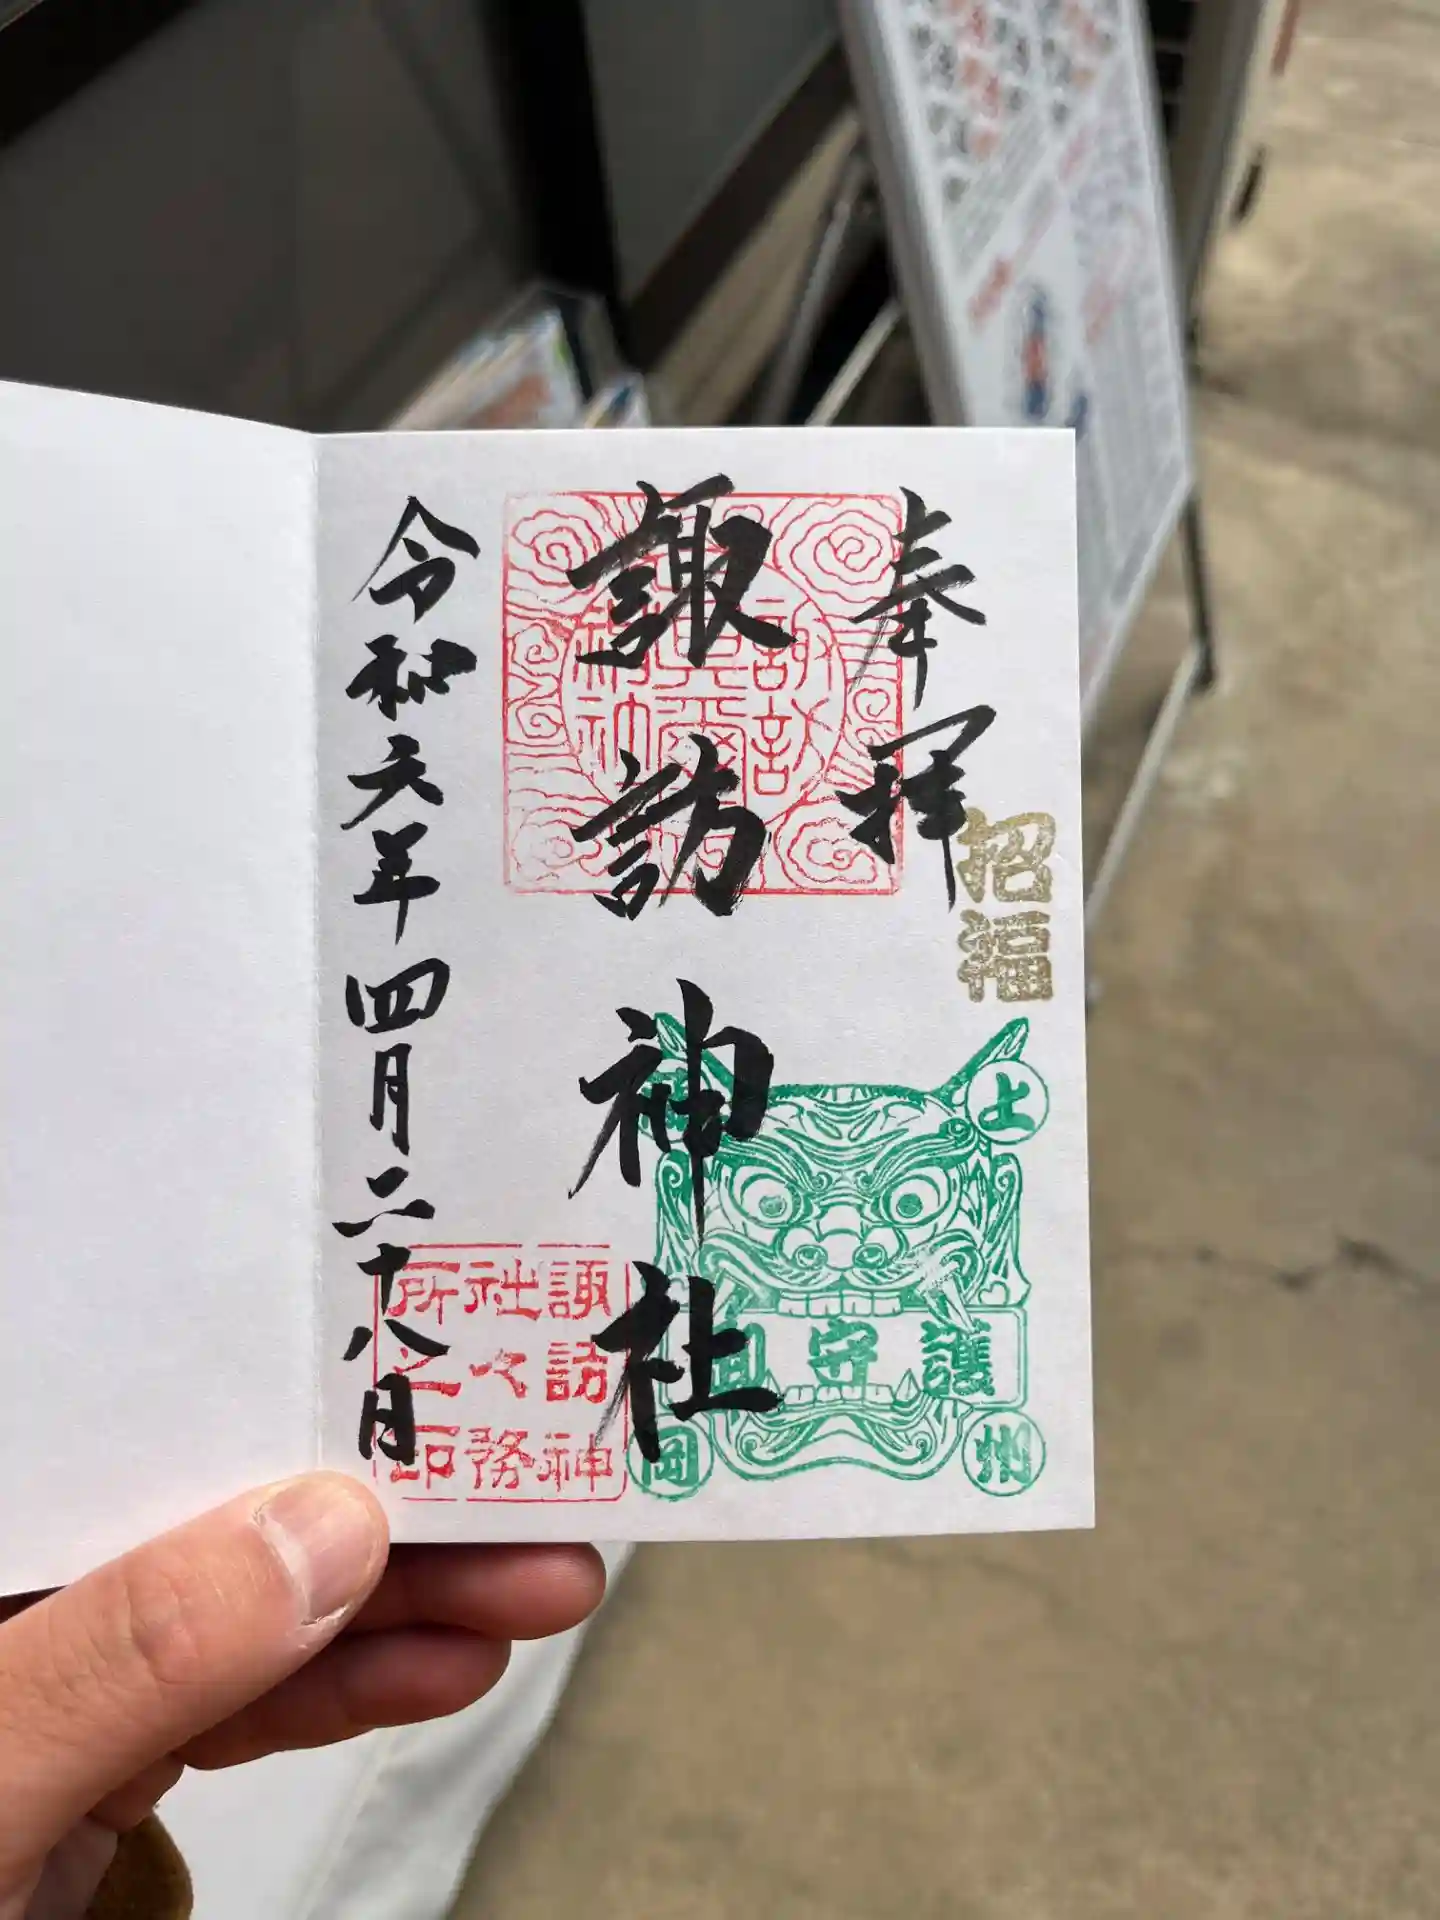 奉拝
招福
諏訪神社
上州
護守
諏訪神
社々務
所之印
令和六年四月二十八日